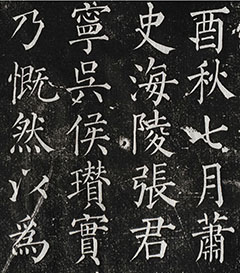 酉秋七月蕭
史海陵張君
寧吳侯瓚實
乃慨然以為